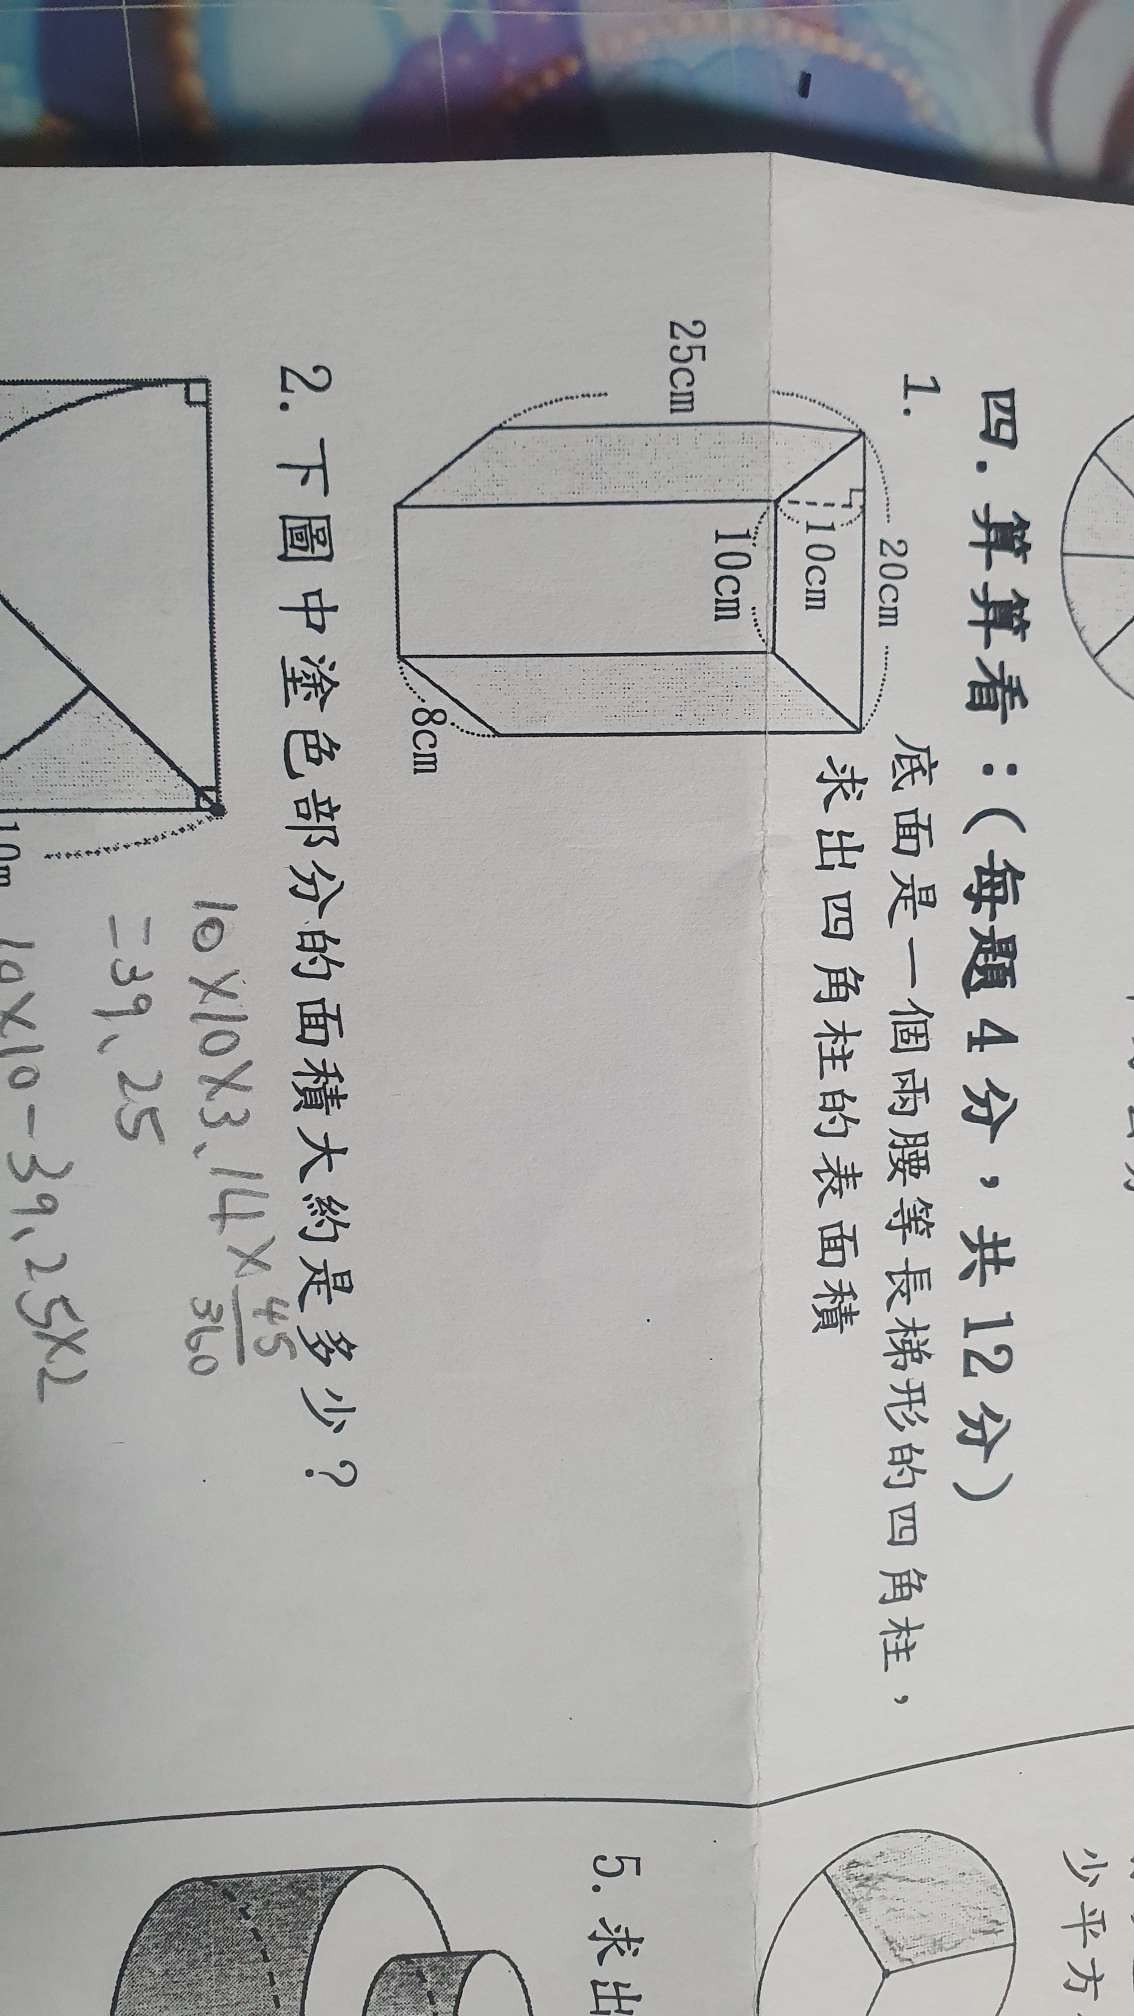 四.算算看：(每題4分，共12分)
1.
底面是一個兩腰等長梯形的四角柱，
求出四角柱的表面積
20cm
10cm
10cm
25cm
8cm
2.下圖中塗色部分的面積大約是多少？
10×10×3.14×45/360
=39.25
10m
10×10-39.25×2
少平方
5.求出